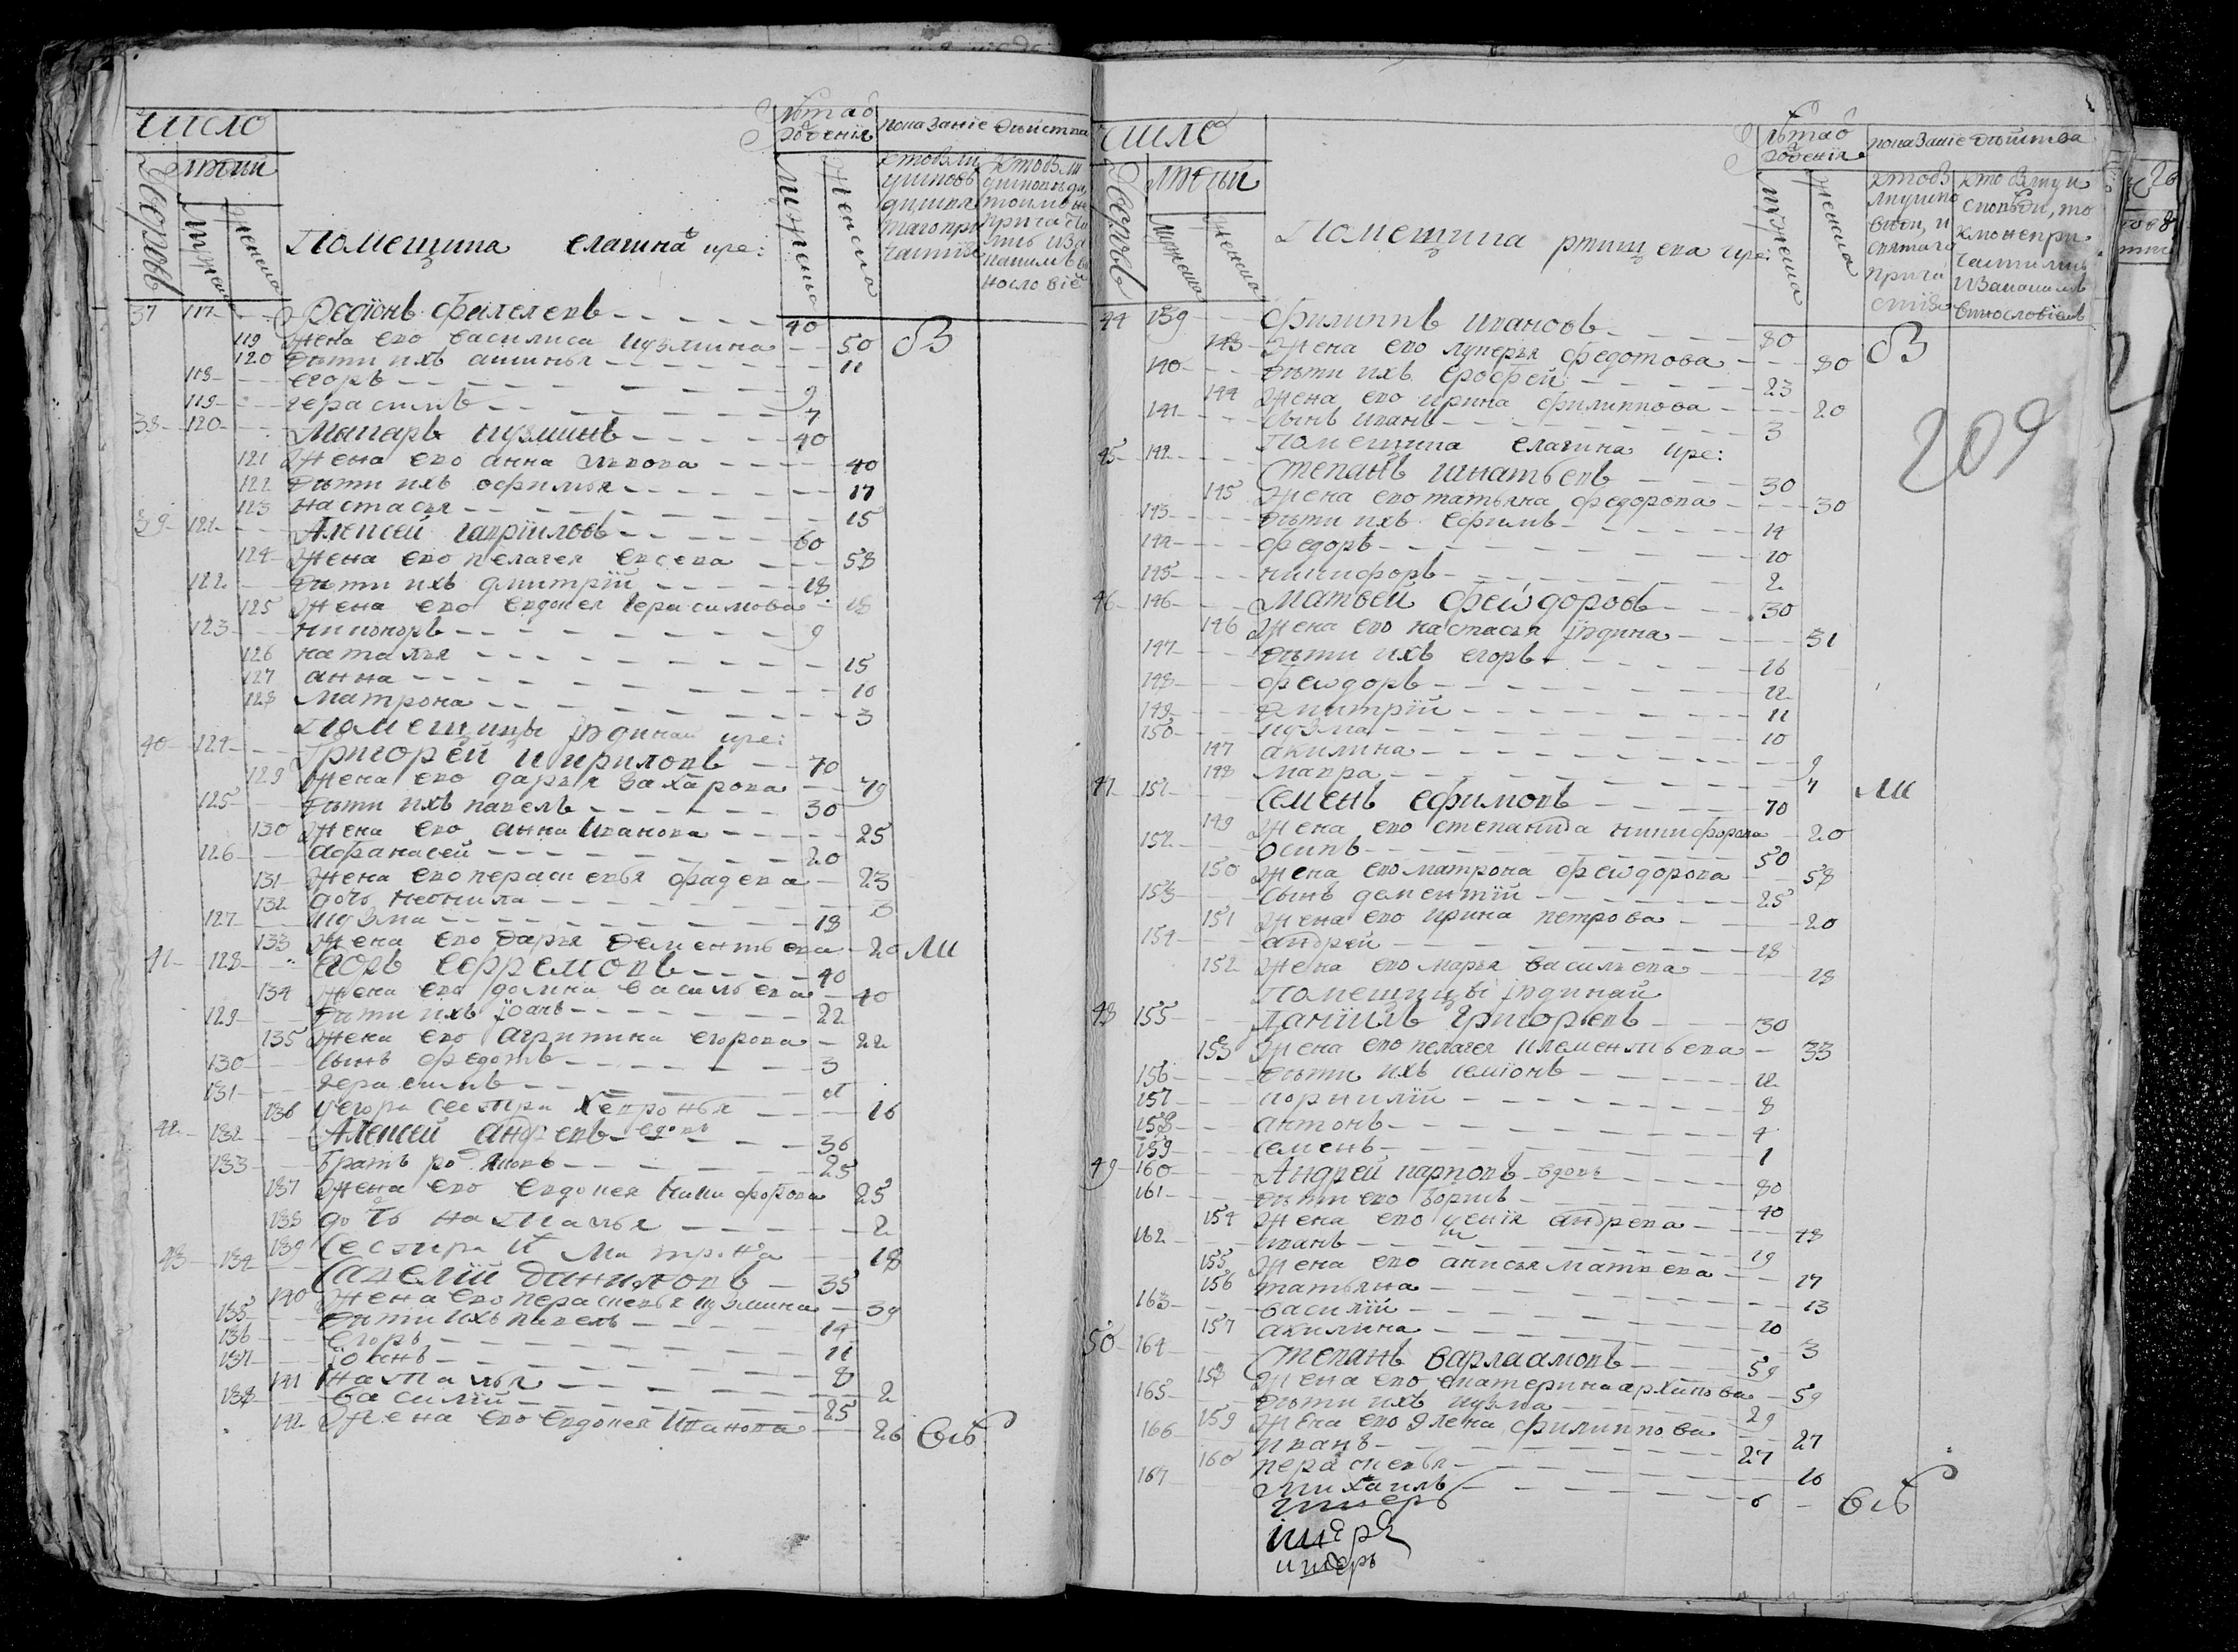 число
лѣта рожденія
показаніе дѣйства
Помещика елагина кре:
37 117 Родіонъ фалелеевъ 40
119 Жена ево василиса кузмина 50 бз
120 Дѣти ихъ акинья 11
118 егоръ 9
119 герасимъ 7
38 120 Макаръ кузминъ 40
121 Жена ево анна 40
122 Дѣти ихъ офимья 17
123 настасья 15
39 121 Алексей гаврииловъ 60
124 Жена ево пелагея евсева 58
122 Дѣти ихъ дмитрій 18
125 Жена ево евдокея герасимова 18
123 никоноръ 9
126 наталья 15
127 анна 10
128 матрона 3
Помещицы юдиной кре:
40 124 Григорей кириловъ 70
129 Жена ево дарья захарова 79
125 Дѣти ихъ павелъ 30
130 Жена ево анна иванова 25
126 афанасей 20
131 Жена ево перасковья фадева 23
132 дочь неонила 3
127 кузма 18
133 Жена ево дарья дементьева 20 ли
41 128 Егоръ Ефремовъ 40
134 Жена ево домна васильева 40
129 Дѣти ихъ іоанъ 22
135 Жена ево агрипина егорова 22
130 сынъ федотъ 3
131 герасимъ
136 у егора сестра хевронья 16
42 132 Алексей андревъ вдовъ 36
133 братъ род: яковъ 25
137 Жена ево евдокея никифорова 25
138 дочь наталья 2
139 сестра их матрона 18
43 134 Савелій даниловъ 35
140 Жена ево перасковья кузмина 39
135 Дѣти ихъ павелъ 14
136 егоръ 11
137 іоанъ 8
141 наталья 2
138 василій 25
142 Жена ево евдокея иванова 26
число
лѣта рожденія
показаніе дѣйства
Помещика ртищева кре:
209
44 139 Филиппъ ивановъ 80
143 Жена ево лукерья федотова 80 бз
140 Дѣти ихъ ерофей 23
144 Жена ево ирина филиппова 20
141 сынъ иванъ 3
Помещика елагина кре:
45 142 Степанъ игнатьевъ 30
145 Жена ево татьяна федорова 30
143 Дѣти ихъ ефимъ 14
144 федоръ 10
145 никифоръ 2
46 146 Матвей феѡдоровъ 30
146 Жена ево настасья юдина 31
147 Дѣти ихъ егоръ 16
148 феѡдоръ 12
149 дмитрій 11
150 кузма 10
147 акилина 9
148 мавра 7
47 151 Семенъ ефимовъ 70 ли
149 Жена ево степанида никифорова 20
152 осипъ 50
150 Жена ево матрона феѡдорова 58
153 сынъ дементій 25
151 Жена ево ирина петрова 20
154 андрей 18
152 Жена ево марья васильева 18
Помещицы юдиной
48 155 Даніилъ григорьевъ 30
153 Жена ево пелагея клементьева 33
156 Дѣти ихъ семіонъ 12
157 корнилій 8
158 антонъ 4
159 семенъ 1
49 160 Андрей карповъ вдовъ 80
161 Дѣти ево борисъ 40
154 Жена ево андрева 48
162 иванъ 19
155 Жена ево анисья матвева 17
156 татьяна 13
163 василій 10
157 акилина 3
50 164 Степанъ варлаамовъ 59
158 Жена ево екатерина архипова 59
165 Дѣти ихъ кузма 29
159 Жена ево елена филиппова 27
166 иванъ 27
160 перасковья 16
167 михаилъ 6